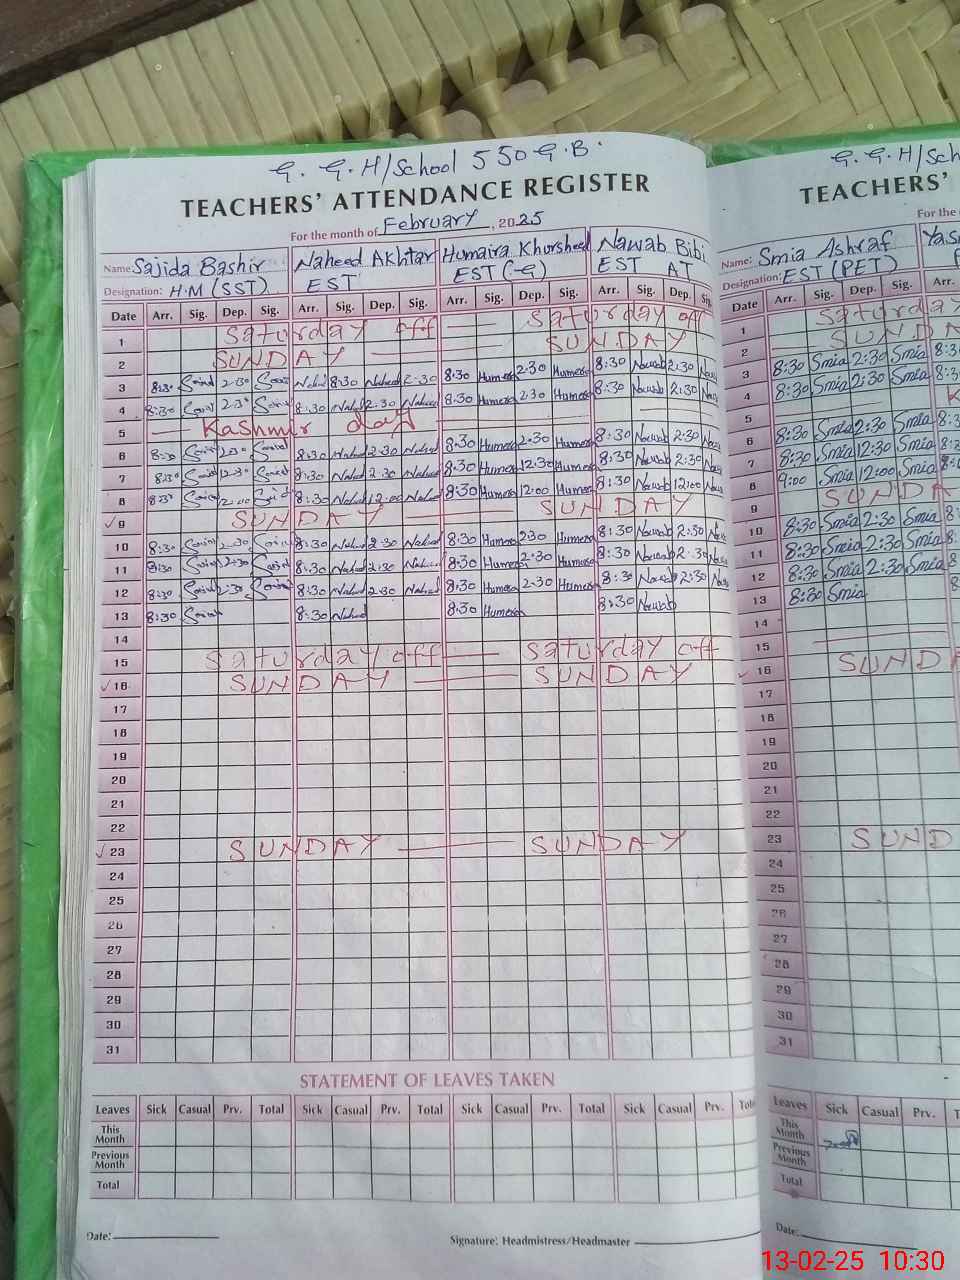 G. G. H/School 550 G.B.
TEACHERS' ATTENDANCE REGISTER
For the month of February, 2025
Name: Sajida Bashir Naheed Akhtar Humaira Khursheed Nawab Bibi
Designation: H.M (SST) EST EST (-G) EST AT
Date Arr. Sig. Dep. Sig. Arr. Sig. Dep. Sig. Arr. Sig. Dep. Sig. Arr. Sig. Dep. Sig.
1 Saturday off Saturday off
2 SUNDAY SUNDAY
3 8:30 2:30 Nahed 8:30 Naheed 2:30 8:30 Humera 2:30 Humera 8:30 Nawab 2:30
4 8:30 2:30 8:30 Nahed 2:30 Naheed 8:30 Humera 2:30 Humera 8:30 Nawab 2:30
5 Kashmir day
6 8:30 2:30 8:30 Nahed 2:30 Nahed 8:30 Humera 2:30 Humera 8:30 Nawab 2:30
7 8:30 12:30 8:30 Nahed 2:30 Nahed 8:30 Humera 12:30 Humera 8:30 Nawab 2:30
8 8:30 12:00 8:30 Nahed 12:00 Nahed 8:30 Humera 12:00 Humera 8:30 Nawab 12:00
9 SUNDAY SUNDAY
10 8:30 2:30 8:30 Nahed 2:30 Nahed 8:30 Humera 2:30 Humera 8:30 Nawab 2:30
11 8:30 2:30 8:30 Nahed 2:30 8:30 Humera 2:30 Humera 8:30 Nawab 2:30
12 8:30 2:30 8:30 Nahed 2:30 Nahed 8:30 Humera 2:30 Humera 8:30 Nawab 2:30
13 8:30 8:30 Nahed 8:30 Humera 8:30 Nawab
14
15 Saturday off Saturday off
16 SUNDAY SUNDAY
17
18
19
20
21
22
23 SUNDAY SUNDAY
24
25
26
27
28
29
30
31
STATEMENT OF LEAVES TAKEN
Leaves Sick Casual Prv. Total Sick Casual Prv. Total Sick Casual Prv. Total Sick Casual Prv.
This Month
Previous Month
Total
Date: Signature: Headmistress/Headmaster
G. G. H/Sch
TEACHERS'
For the
Name: Smia Ashraf
Designation: EST (PET)
Date Arr. Sig. Dep. Sig. Arr.
1 Saturday
2 SUNDA
3 8:30 Smia 2:30 Smia 8:30
4 8:30 Smia 2:30 Smia
5
6 8:30 Smia 2:30 Smia
7 8:30 Smia 12:30 Smia
8 9:00 Smia 12:00 Smia
9 SUNDA
10 8:30 Smia 2:30 Smia
11 8:30 Smia 2:30 Smia
12 8:30 Smia 2:30 Smia
13 8:30 Smia
14
15
16 SUNDA
17
18
19
20
21
22
23 SUND
24
25
26
27
28
29
30
31
Leaves Sick Casual Prv.
This Month
Previous Month
Total
Date:
13-02-25 10:30